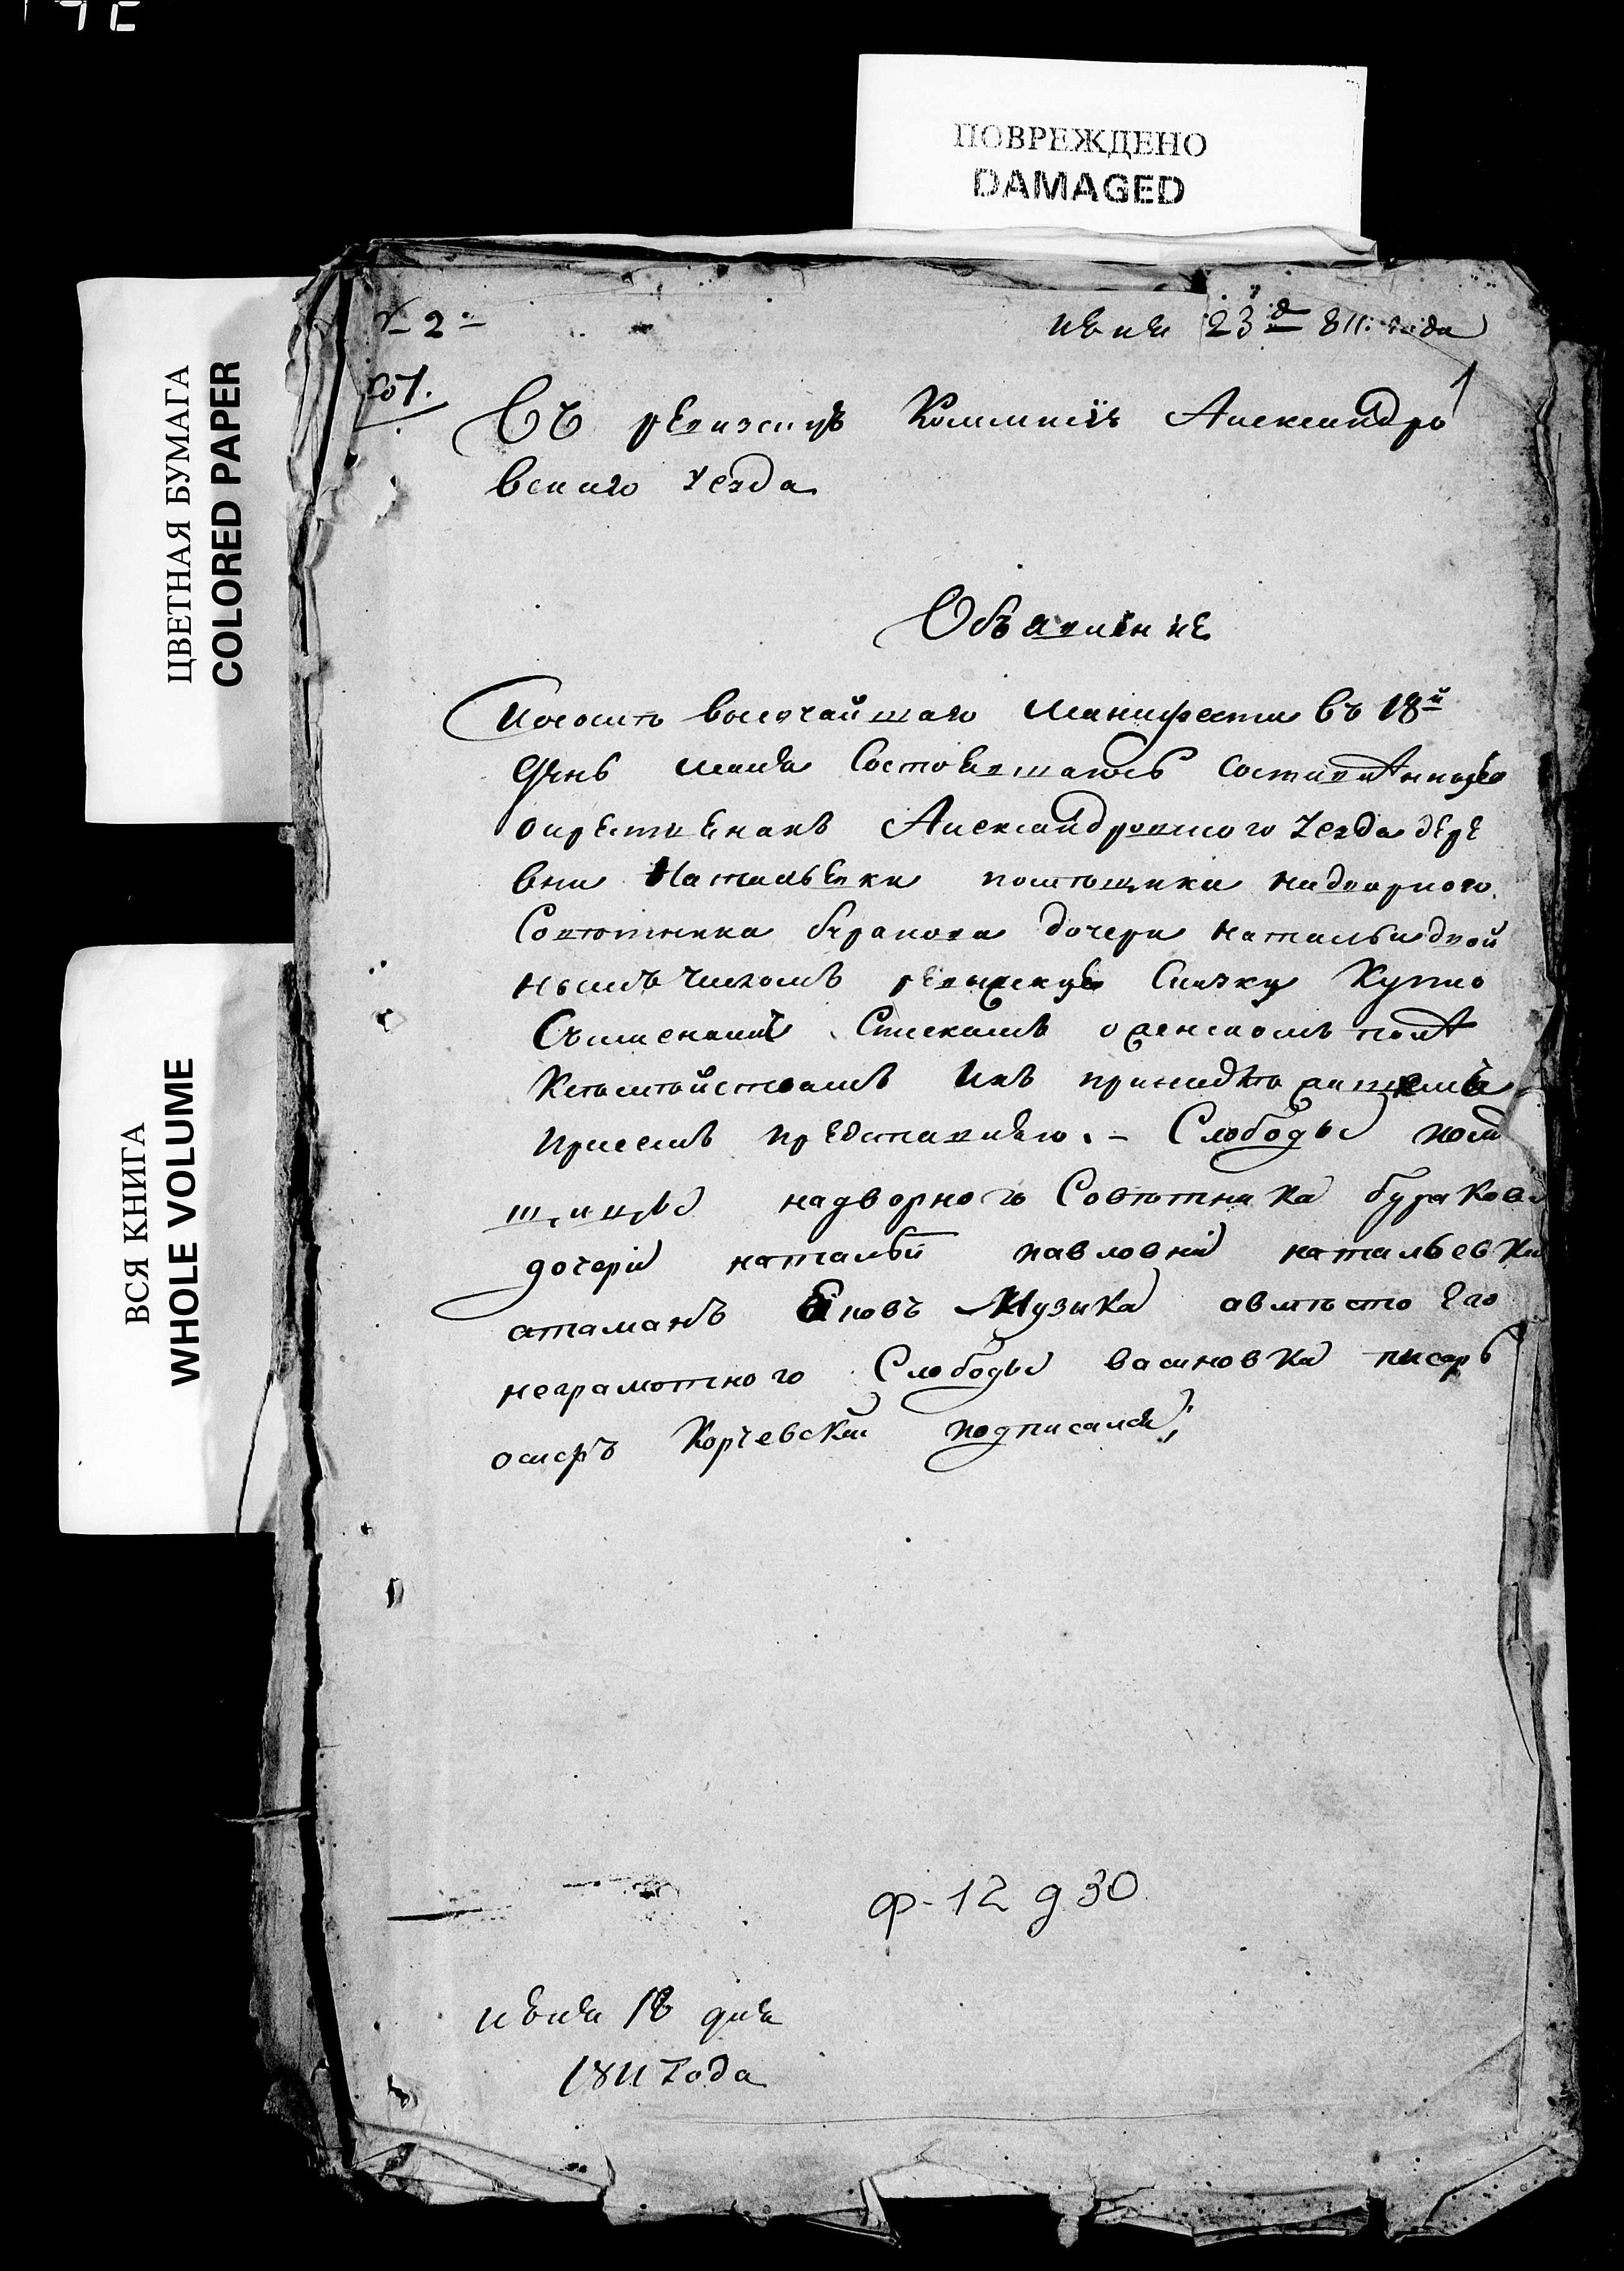 ПОВРЕЖДЕНО
DAMAGED
ЦВЕТНАЯ БУМАГА
COLORED PAPER
ВСЯ КНИГА
WHOLE VOLUME
2
июня 23 д 811 года
1
Въ ревизскую Коммисію Александро
вскаго уезда
Объявление
высочайшаго манифеста въ 18й
день мая состоявшагось
о крестьянахъ Александровского уезда дере
вни Натальевки помещика надворного
Советника буракова дочери натальи
числомъ ревизскую скаску купно
о женскомъ поле
ихъ
присемъ представляю. - Слободы поме
щицы надворного Советника буракова
дочери натальи павловни натальевки
атаманъ Музика авместо его
неграмотного Слободы васиновки писарь
осипъ Корчевски подписалъся;
ф-12 д 30
июня 18 дня
1811 года